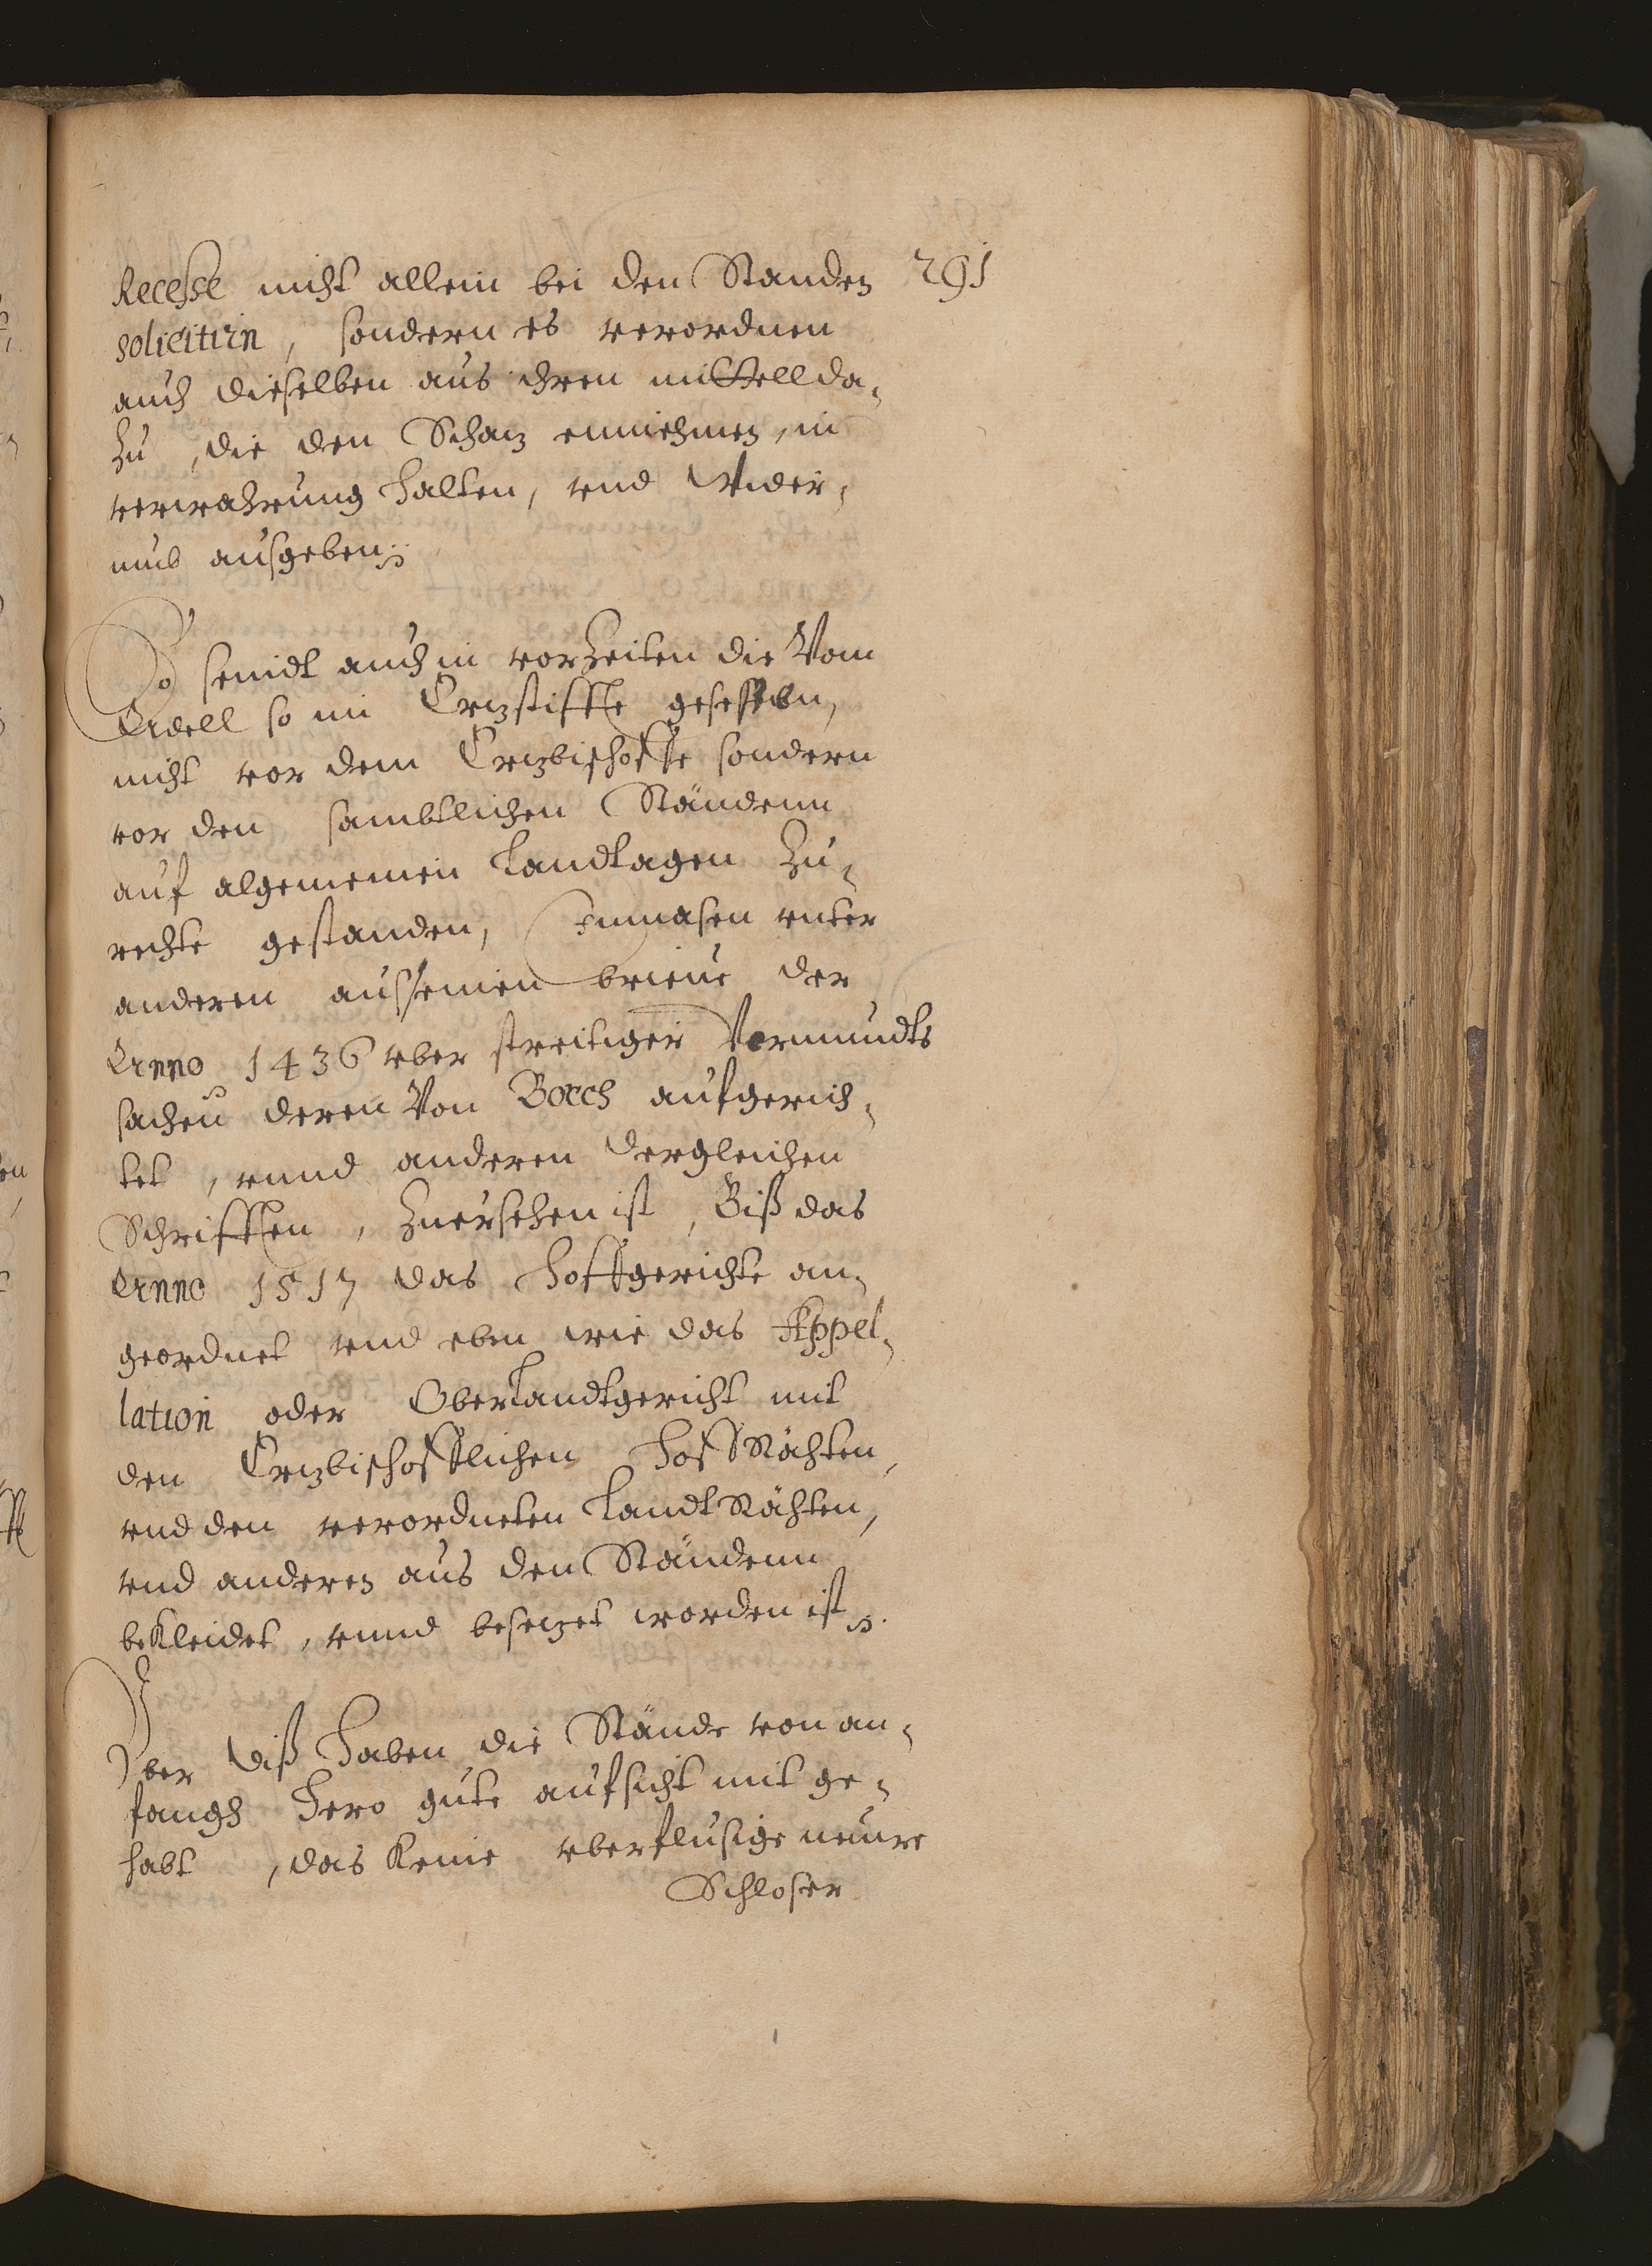 291
Recesse nicht allein bei den Standen
solicitirn, sondern es verordnen
auch dieselben aus ihren mittell da-
zu, die den Schaz einnehmen, in
verwahrung halten, vnd wider-
umb ausgeben.
So seindt auch in vorzeiten die Vom
Adell so im Erzstiffte gesessen,
nicht vor dem Erzbischoffe sondern
vor den sambtlichen Ständenn
auf algemeinen Landtagen zu-
rechte gestanden, Inmasen vnter
anderen aus einen brieue der
Anno 1436 vber streitiger Vormundts
sachen deren Von Borch aufgerich-
tet, vnnd anderen dergleichen
Schrifften, zuersehen ist, Biß das
Anno 1517 das Hoffgerichte an-
geordnet vnd eben wie das Appel-
lation oder Oberlandtgericht mit
den Erzbischofflichen Hoff Rähten,
vnd den verordneten Landt Rähten,
vnd anderen aus den Ständenn
bekleidet, vnnd besezet worden ist.
Vber diß haben die Stände von an-
fangh hero gute aufsicht mit ge-
habt, das keine vberflusige neuwe
Schloser